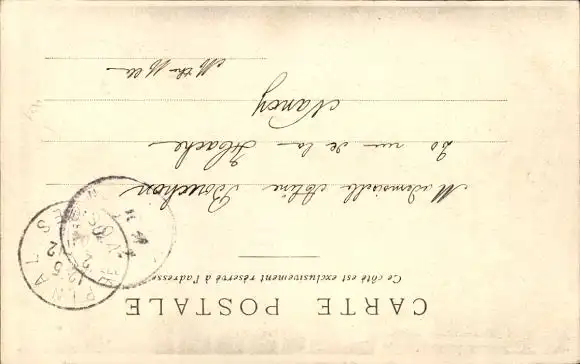 CARTE POSTALE
Ce côté est exclusivement réservé à l'adresse
Mademoiselle Aline Bouchon
20 rue de la Hache
Nancy
M the M elle
PINAL
12